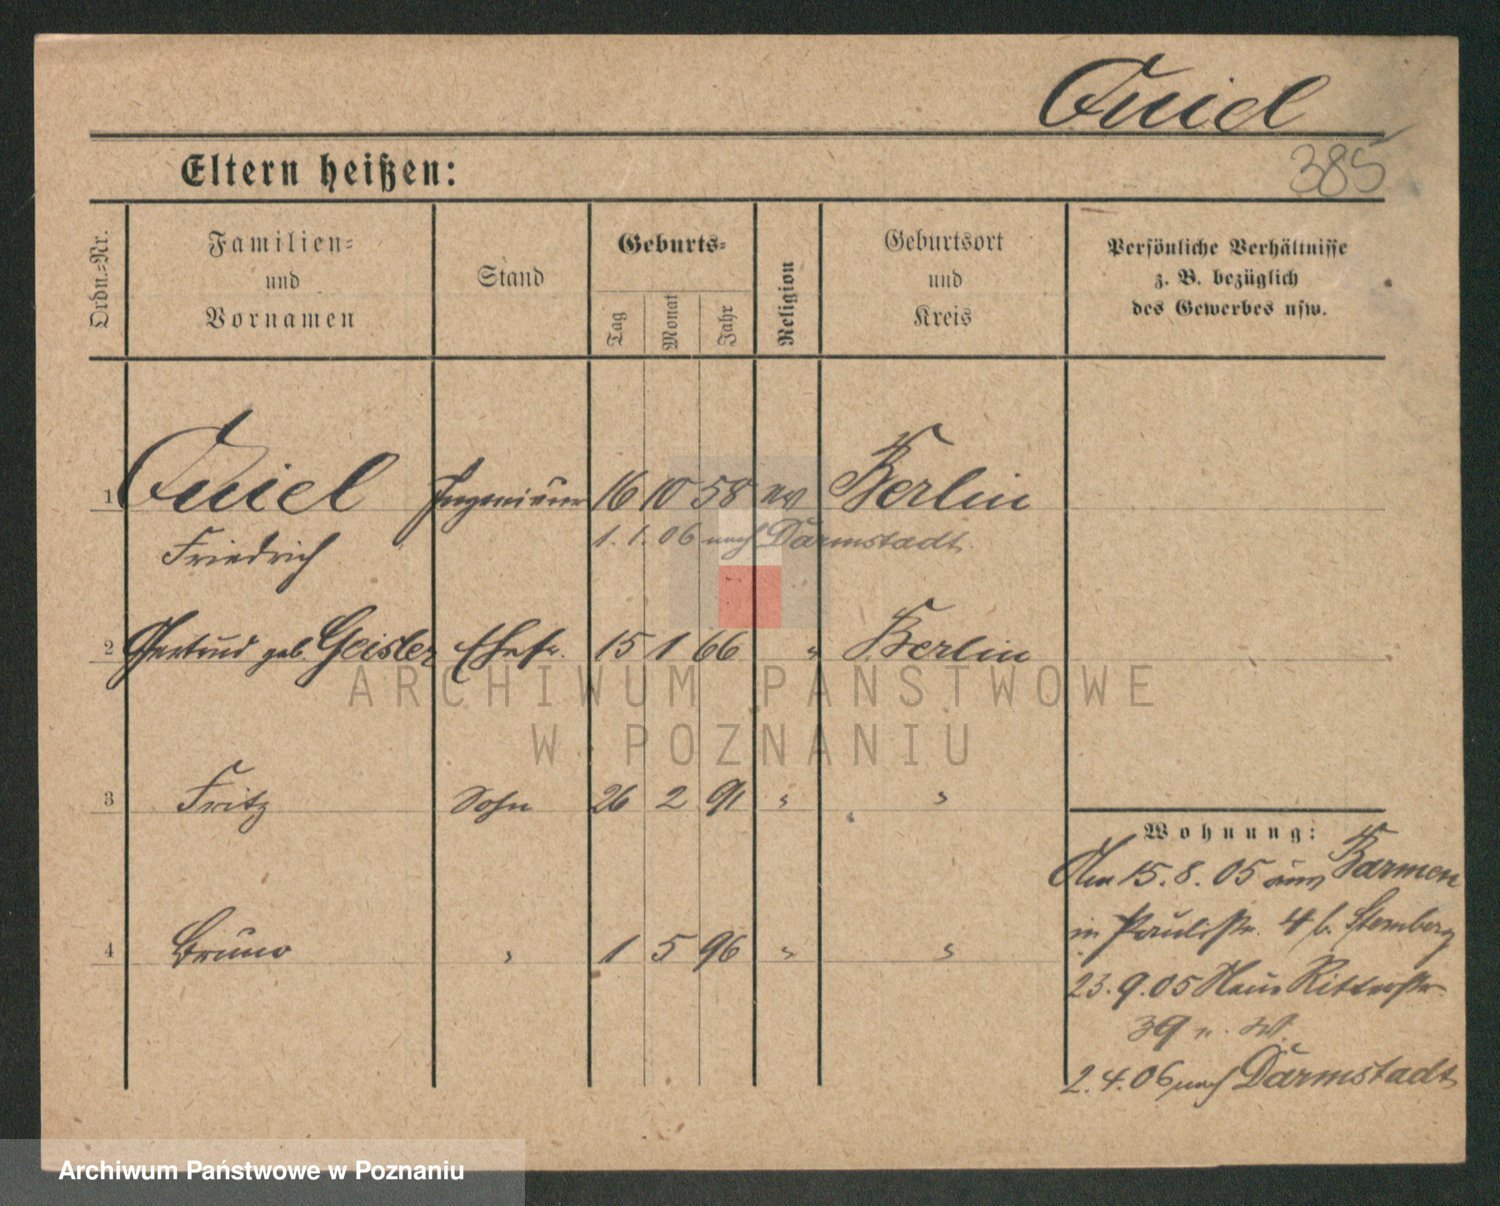 Quiel
385
Eltern heißen:
Ordn.-Nr.
Familien-
und
Vornamen
Stand
Geburts-
Tag
Monat
Jahr
Religion
Geburtsort
und
Kreis
Persönliche Verhältnisse
z. B. bezüglich
des Gewerbes usw.
1 Quiel Ingenieur 16 10 58 ev Berlin
Friedrich 1. 1. 06 nach Darmstadt.
2 Gertrud geb. Geisler Ehefr. 15 1 66 " Berlin
3 Fritz Sohn 26 2 91 " "
4 Bruno " 1 5 96 " "
Wohnung:
Am 15. 8. 05 aus Barmen
in Paulistr. 4 b. Sternberg
23. 9. 05 Neue Ritterstr.
39
2. 4. 06 nach Darmstadt
ARCHIWUM PAŃSTWOWE
W POZNANIU
Archiwum Państwowe w Poznaniu